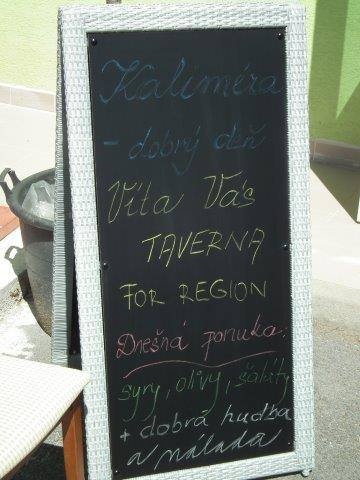 Kaliméra
- dobrý deň
Víta Vás
TAVERNA
FOR REGION
Dnešná ponuka:
syry, olivy, šaláty
+ dobrá hudba
a nálada